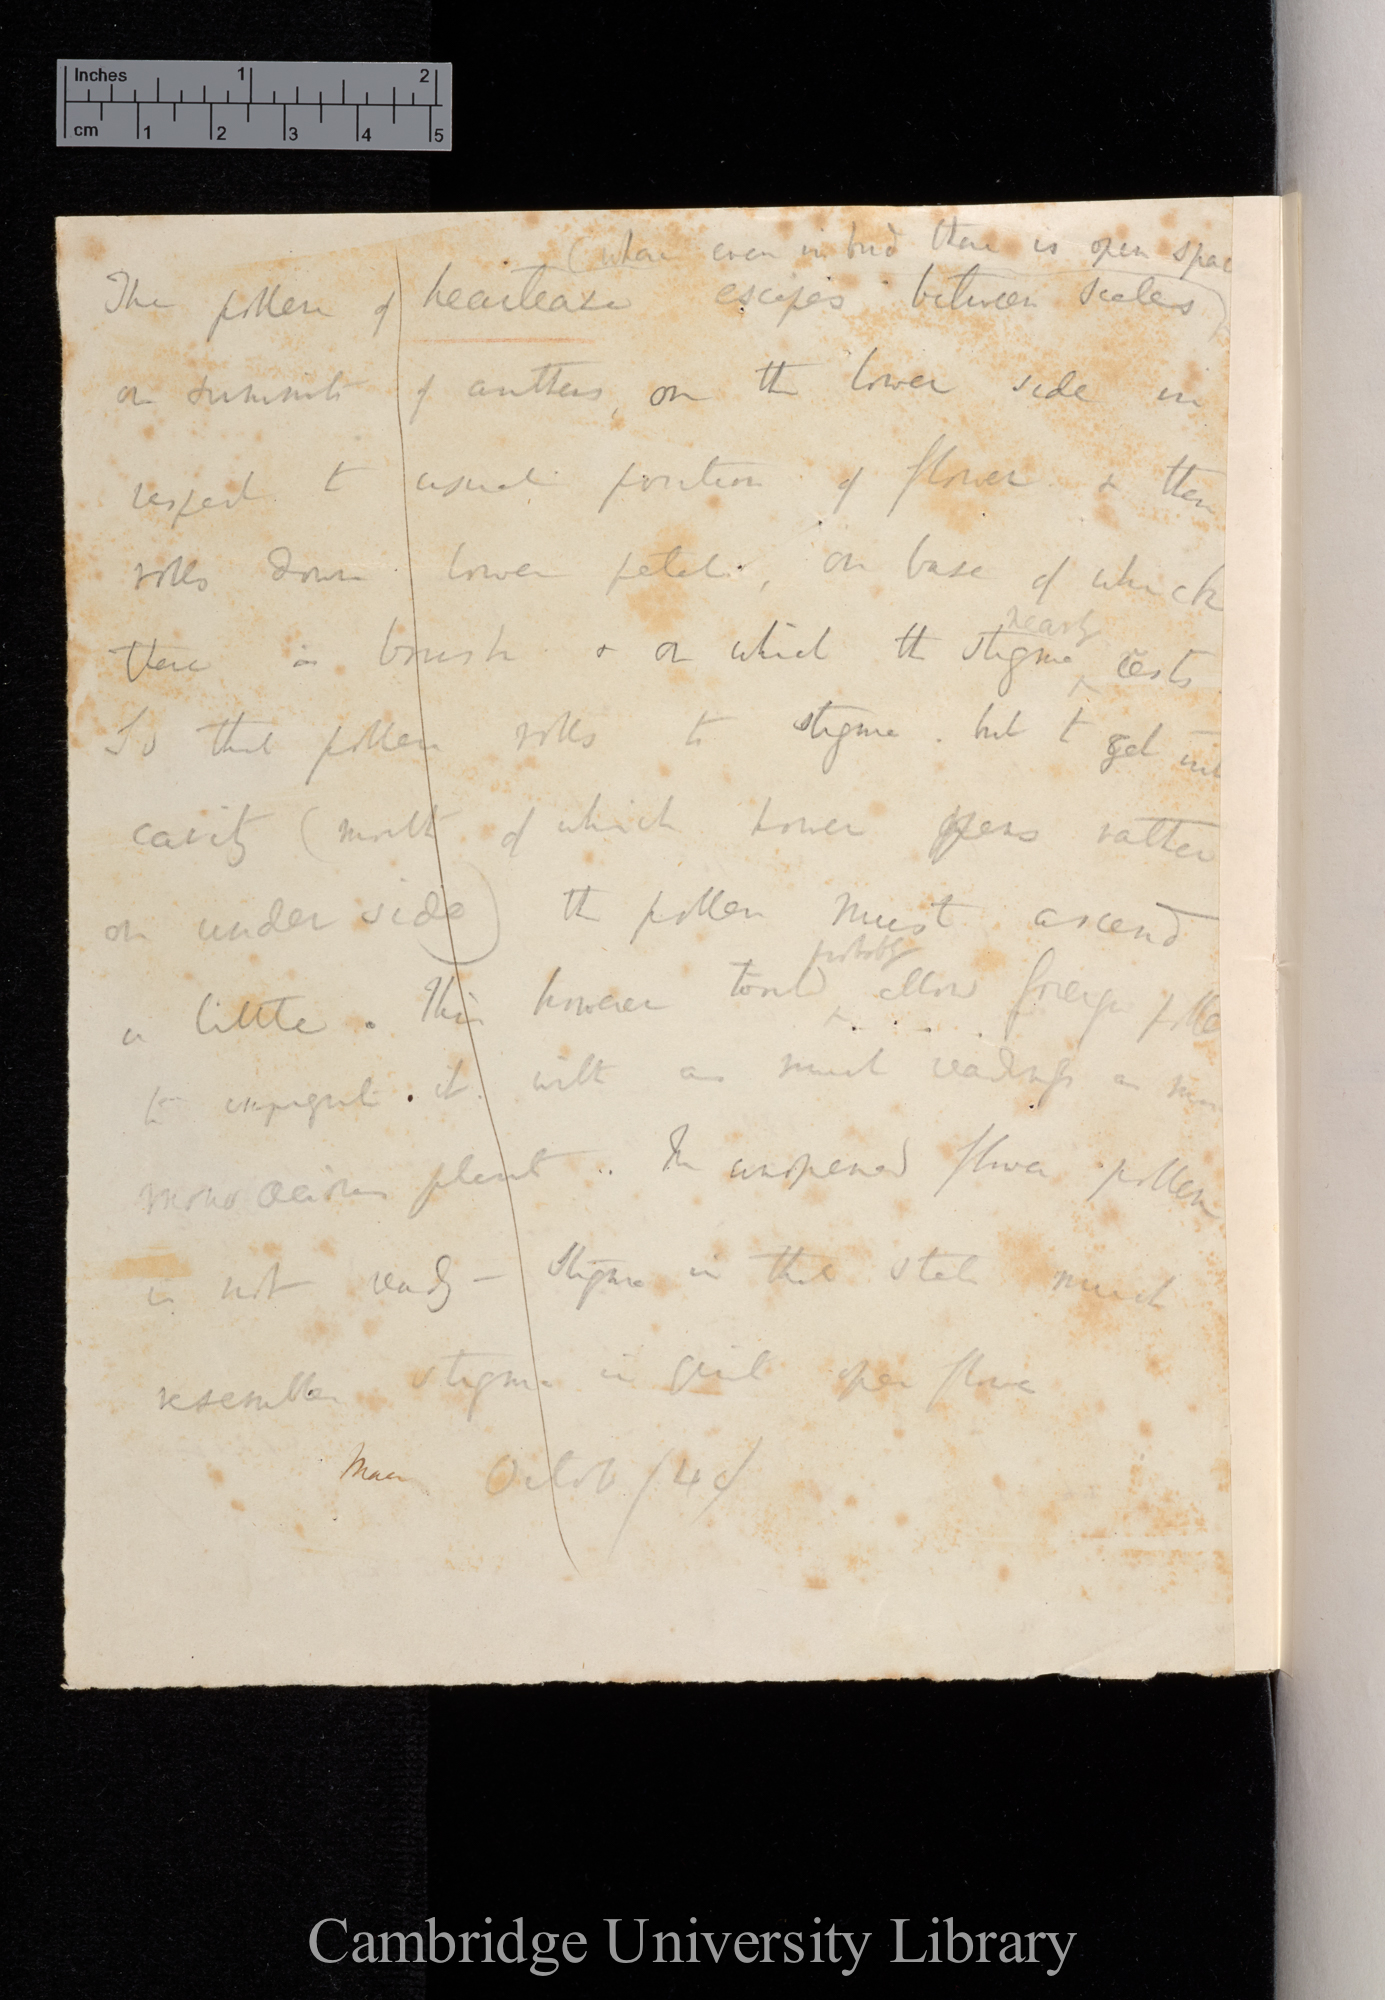 Inches 1 2
cm 1 2 3 4 5
(where even in bud there is open space
The pollen of heartease escapes between scales)
on summit of anthers, on the lower side in
respect to usual position of flower & then
rolls down lower petal, on base of which
nearly
there is brush & on which the stigma rests
So that pollen rolls to stigma. but to get into
cavity (mouth of which however opens rather
on under side) the pollen must ascend
probably
a little. This however would allow foreign pollen
to impregnate it with as much readiness as
monoecious plant. In unopened flower pollen
is not ready — Stigma in that state much
resembles stigma in quite open flower
Maer Octob /4
Cambridge University Library